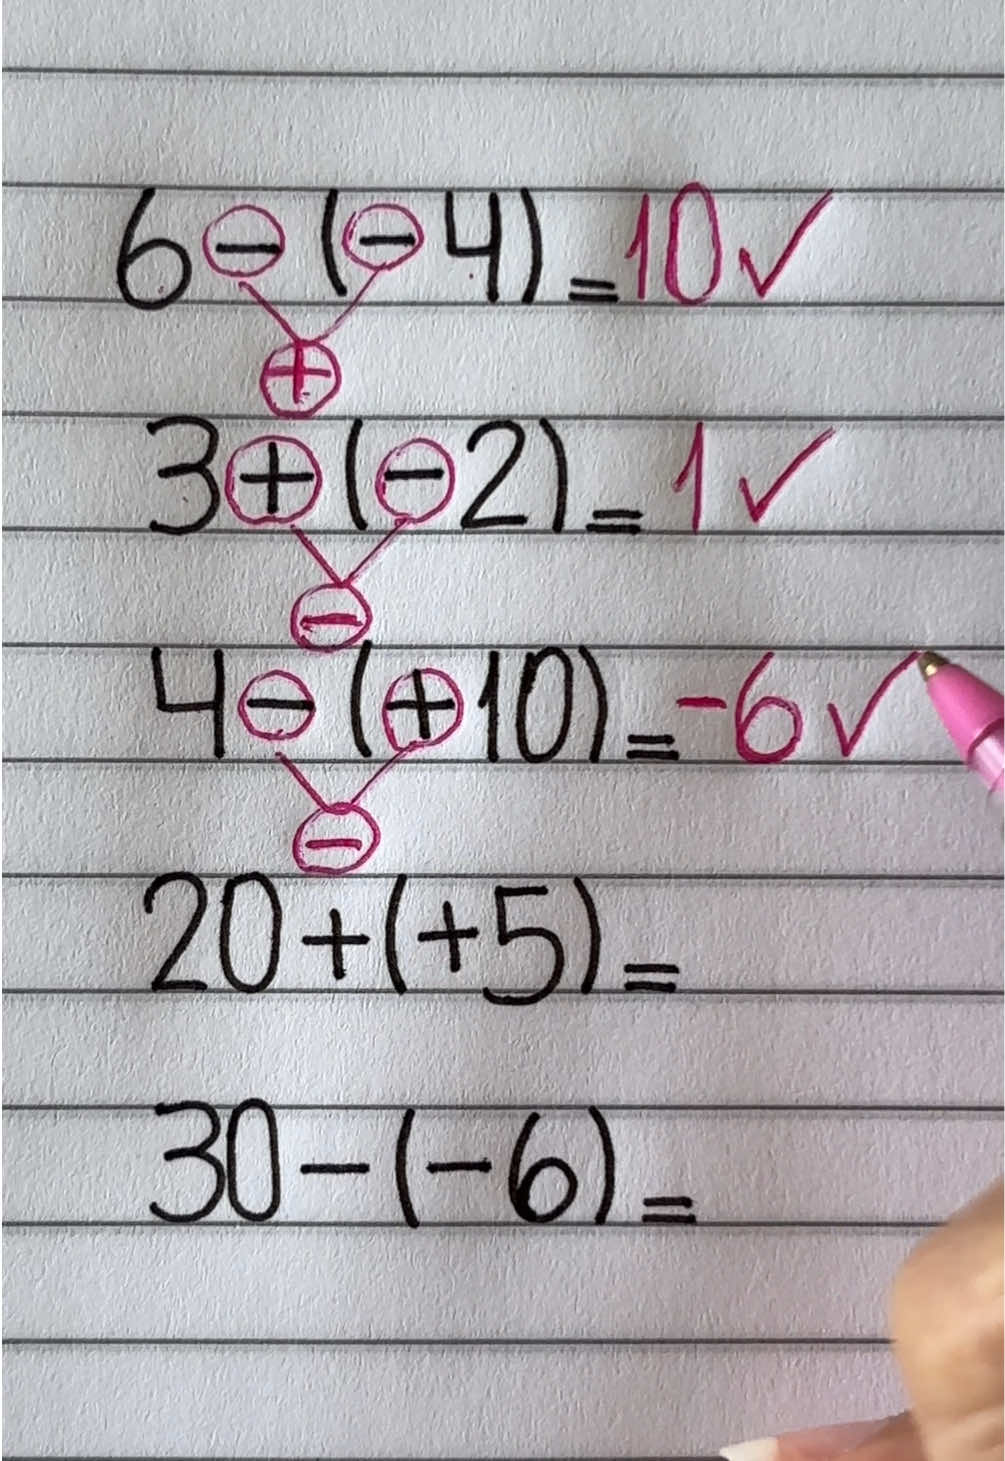 6 - (-4) = 10 ✓
+
3 + (-2) = 1 ✓
-
4 - (+10) = -6 ✓
-
20 + (+5) =
30 - (-6) =